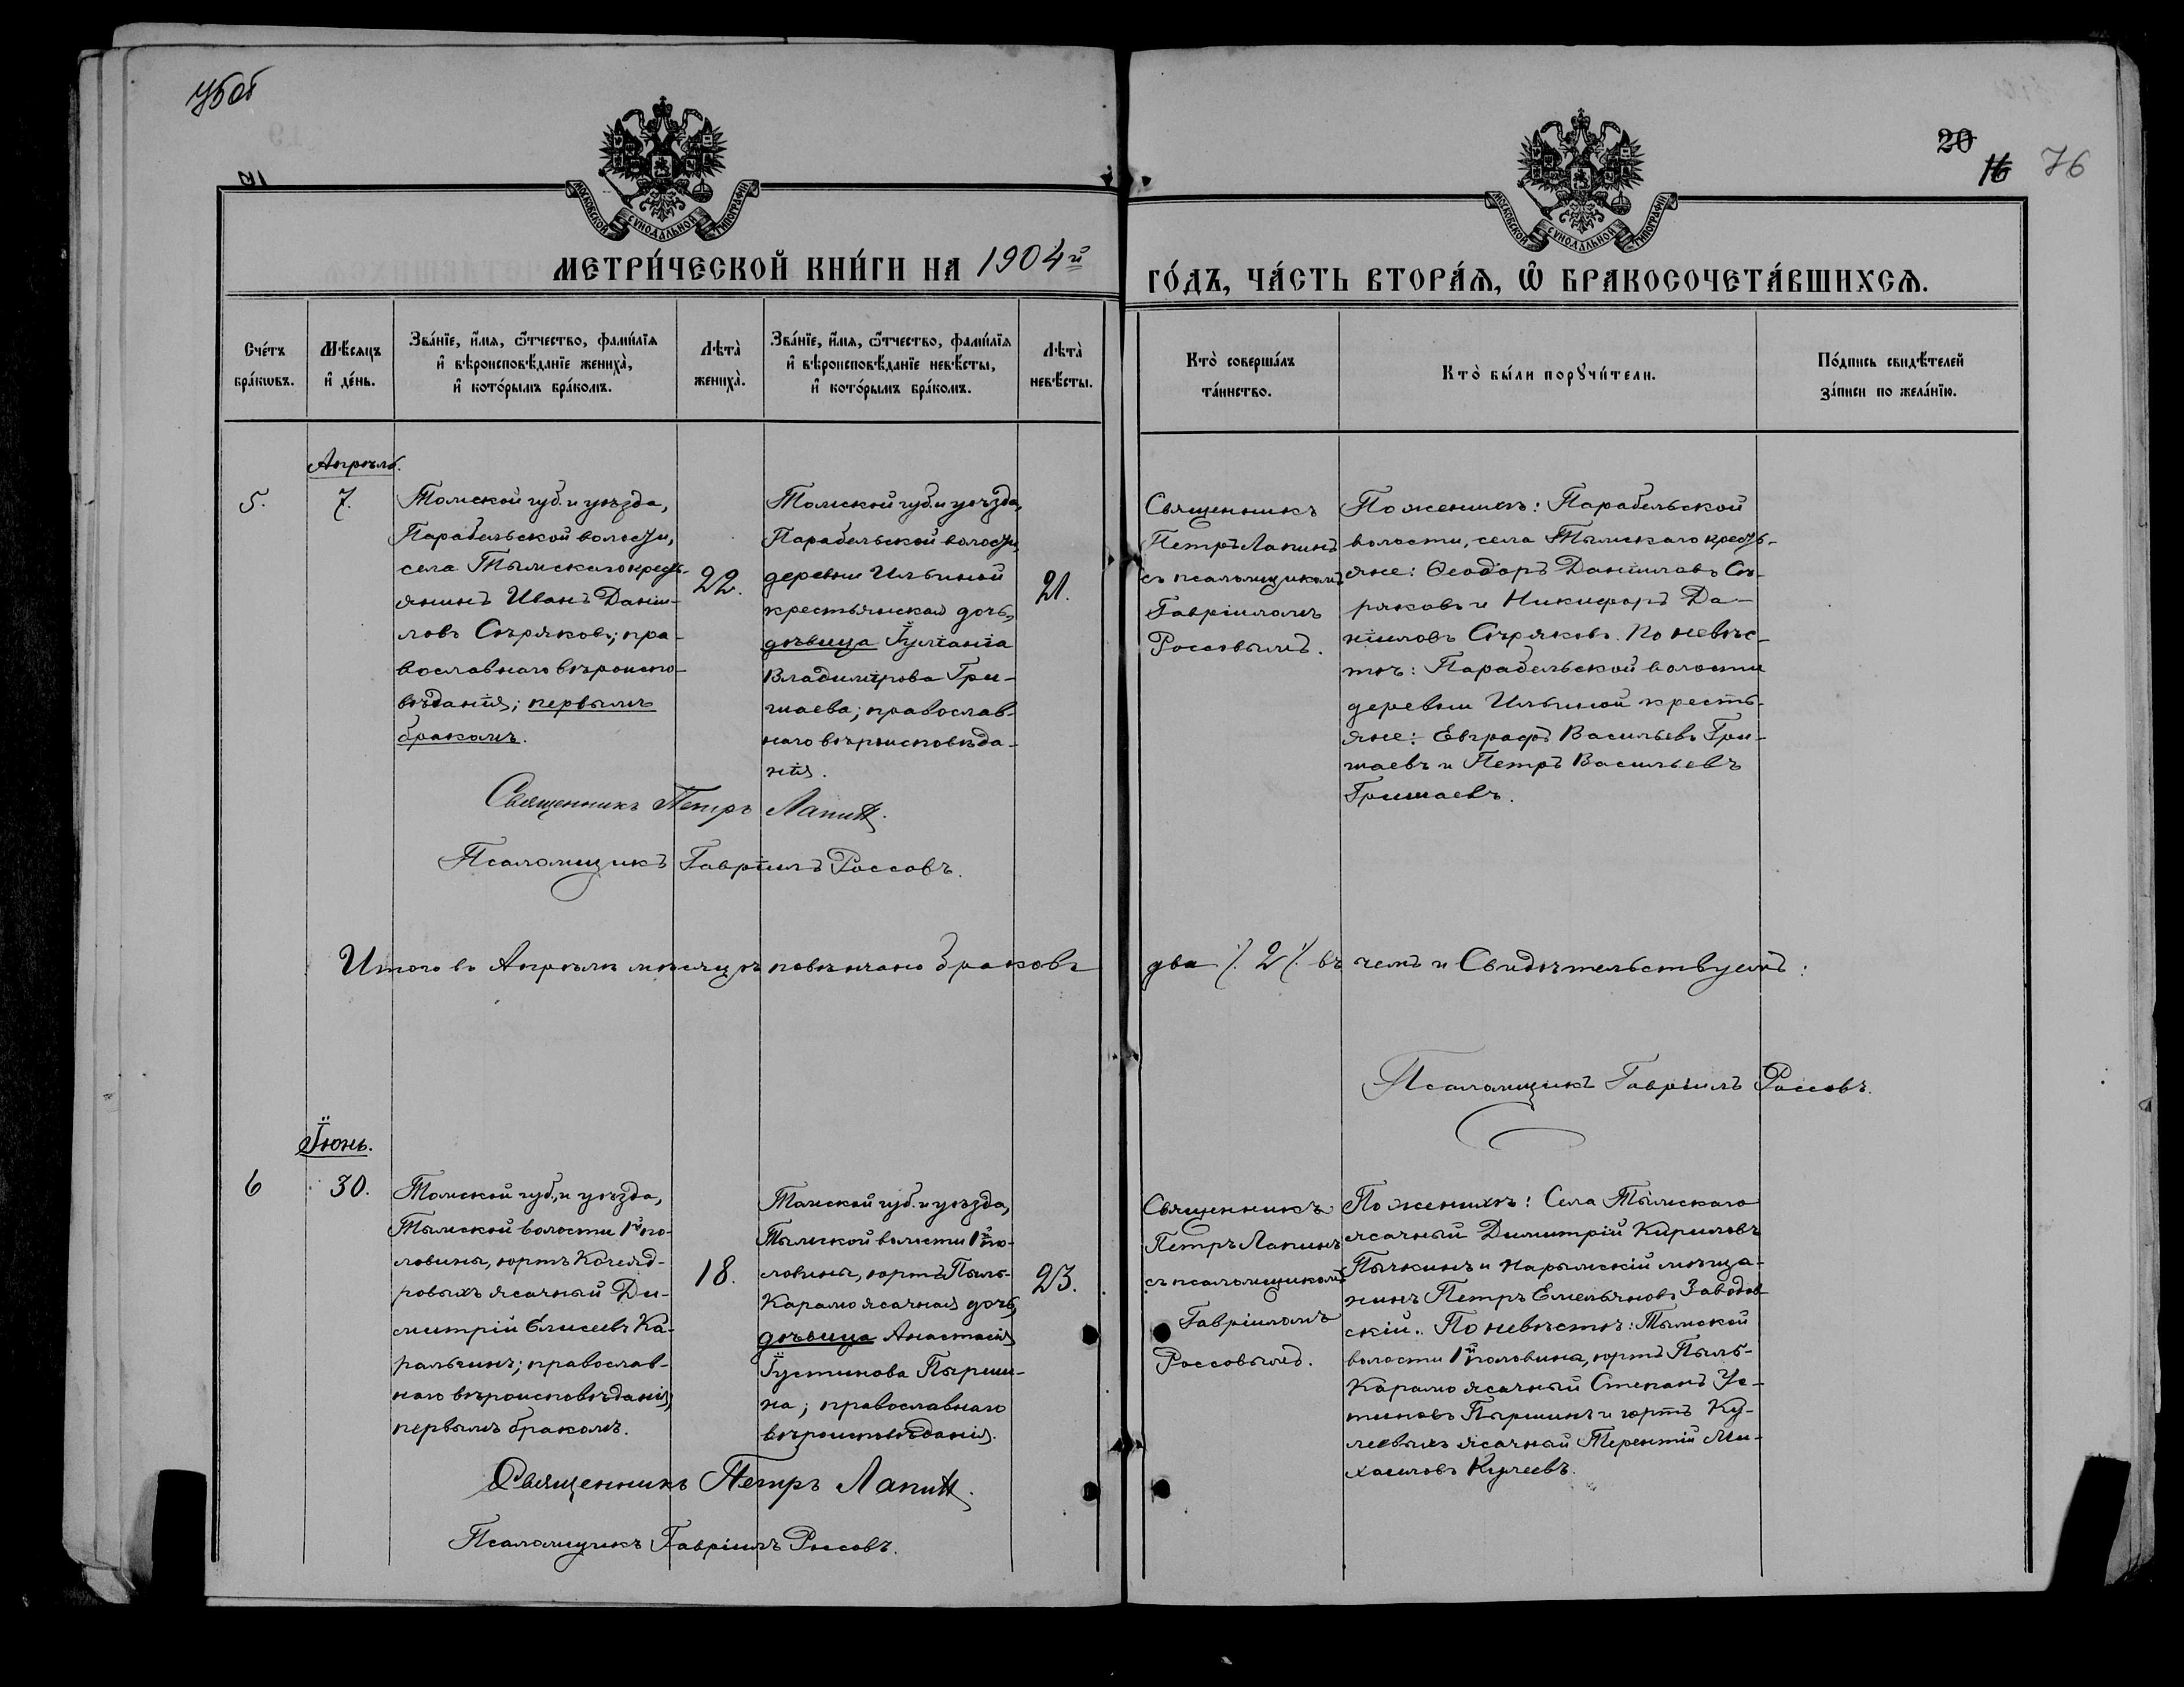 20
16
76
МОСКОВСКОЙ СѴНОДАЛЬНОЙ ТИПОГРАФІИ
МОСКОВСКОЙ СѴНОДАЛЬНОЙ ТИПОГРАФІИ
МЕТРИ́ЧЕСКОЙ КНИ́ГИ НА 1904й
ГО́ДЪ, ЧА́СТЬ ВТОРА́Ѧ, Ѽ БРАКОСОЧЕТА́ВШИХСѦ.
Сче́тъ
бра́кѡвъ.
Мѣ́сяцъ
и҆ де́нь.
Зва́нїе, и҆́мя, ѻ҆́тчество, фами́лїя
и҆ вѣроисповѣ́данїе жениха̀,
и҆ кото́рымъ бра́комъ.
Лѣта̀
жениха̀.
Зва́нїе, и҆́мя, ѻ҆́тчество, фами́лїя
и҆ вѣроисповѣ́данїе невѣ́сты,
и҆ кото́рымъ бра́комъ.
Лѣта̀
невѣ́сты.
Кто̀ соверша́лъ
та́инство.
Кто̀ бы́ли порꙋчи́тели.
По́дпись свидѣ́телей
за́писи по жела́нїю.
Апрѣль.
5.
7.
Томской губ. и уѣзда,
Парабельской волости,
села Тымскаго кресть-
янинъ Иванъ Даніи-
ловъ Сѣряковъ; пра-
вославнаго вѣроиспо-
вѣданія; первымъ
бракомъ.
22.
Томской губ. и уѣзда,
Парабельской волости,
деревни Ильиной
крестьянская дочь,
дѣвица Іуліанія
Владимірова Гри-
шаева; православ-
наго вѣроисповѣда-
нія.
21.
Священникъ
Петръ Лапинъ
съ псаломщикомъ
Гавріиломъ
Россовымъ.
По женихѣ: Парабельской
волости, села Тымскаго кресть-
яне: Ѳеодоръ Даніиловъ Сѣ-
ряковъ и Никифоръ Да-
ніиловъ Сѣряковъ. По невѣс-
тѣ: Парабельской волости
деревни Ильиной кресть-
яне: Евграфъ Васильевъ Гри-
шаевъ и Петръ Васильевъ
Гришаевъ.
Священникъ Петръ Лапинъ.
Псаломщикъ Гавріилъ Россовъ.
Итого въ Апрѣлѣ мѣсяцѣ повѣнчано браковъ два ./. 2 ./. въ чемъ и Свидѣтельствуемъ:
Псаломщикъ Гавріилъ Россовъ.
Іюнь.
6
30.
Томской губ., и уѣзда,
Тымской волости 1й по-
ловины, юртъ
ясачный Ди-
митрій Елисеевъ Ка-
ральчинъ; православ-
наго вѣроисповѣданія,
первымъ бракомъ.
18.
Томской губ. и уѣзда,
Тымской волости 1й по-
ловины, юртъ Пыль-
Карамо ясачная дочь,
дѣвица Анастасія
Іустинова Пырши-
на; православнаго
вѣроисповѣданія.
23.
Священникъ
Петръ Лапинъ
съ псаломщикомъ
Гавріиломъ
Россовымъ.
По женихѣ: Села Тымскаго
ясачный Димитрій Кириловъ
Пычкинъ и Нарымскій мѣща-
нинъ Петръ Емельяновъ Заводов-
скій. По невѣстѣ: Тымской
волости 1й половина, юртъ Пыль-
Карамо ясачный Степанъ Ус-
тиновъ Пыршинъ и юртъ Ку-
леевыхъ ясачный Терентій Ми-
хаиловъ Кулеевъ.
Священникъ Петръ Лапинъ.
Псаломщикъ Гавріилъ Россовъ.